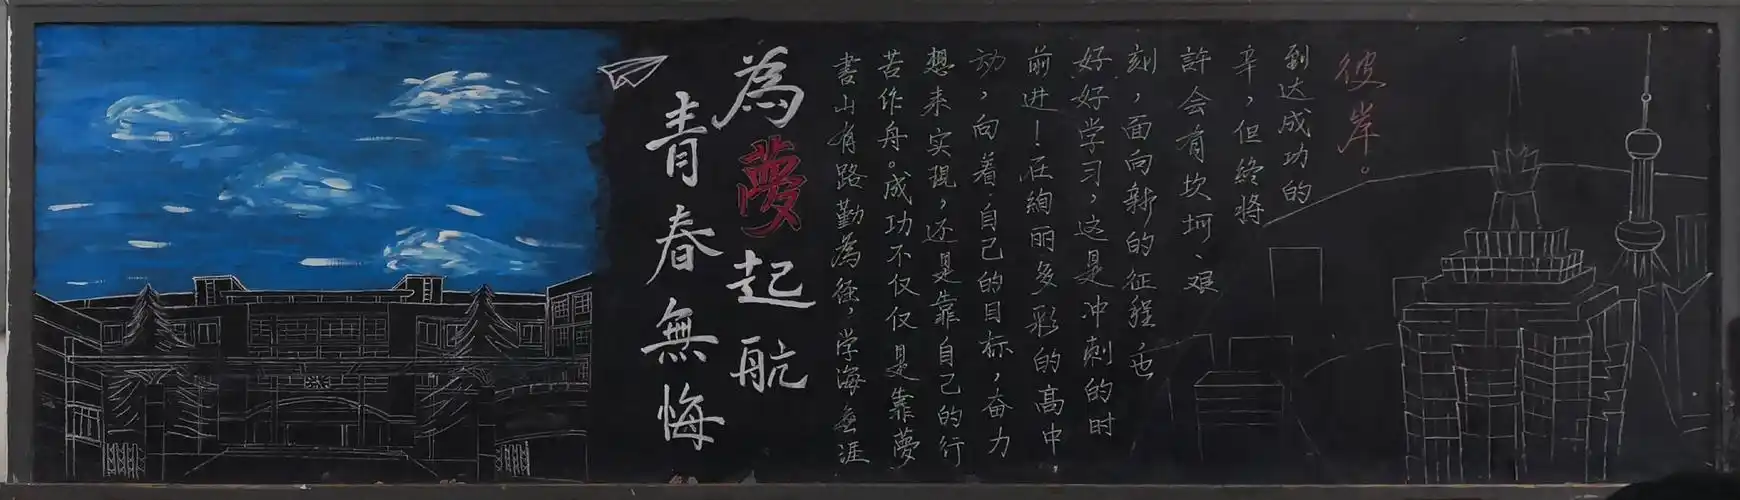 青春無悔
為夢起航
書山有路勤為径，学海無涯
苦作舟。成功不仅仅是靠夢
想来实现，还是靠自己的行
动，向着自己的目标，奋力
前进！在絢丽多彩的高中
好好学习，这是冲刺的时
刻，面向新的征程，也
許会有坎坷、艰
辛，但終将
到达成功的
彼岸。